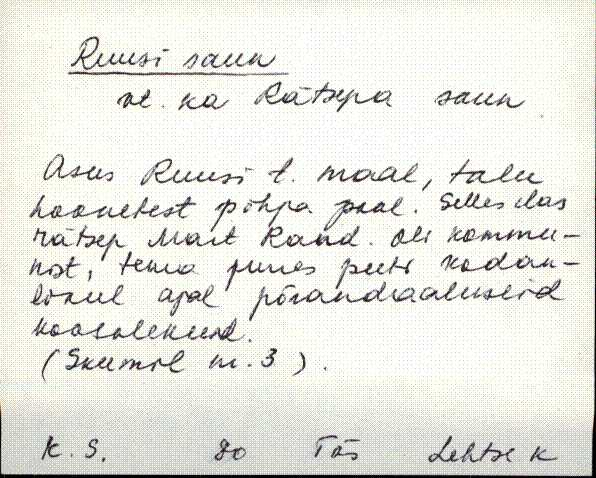 Ruusi saun
vt. ka Rätsepa saun
Asus Ruusi t. maal, talu
hoonetest põhja pool. Selles elas
rätsep Mart Rand. Oli kommu-
nist, tema juures peeti kodan-
likul ajal põrandaaluseid
koosolekuid.
(Skeemil nr. 3).
K. S. 80 Tõs Lehtse k